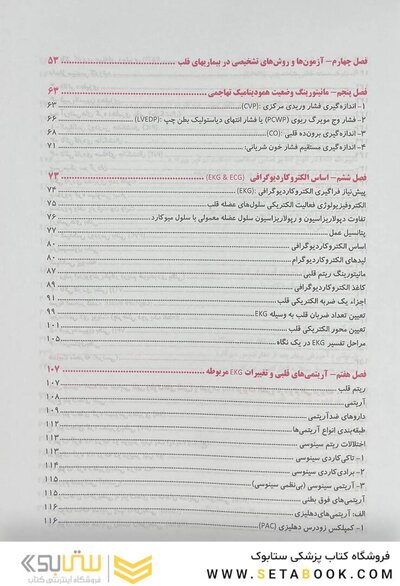 فصل چهارم- آزمون‌ها و روش‌های تشخیصی در بیماریهای قلب ۵۳
فصل پنجم- مانیتورینگ وضعیت همودینامیک تهاجمی ۶۳
۱- اندازه‌گیری فشار وریدی مرکزی (CVP): ۶۳
۲- فشار وج مویرگ ریوی (PCWP) یا فشار انتهای دیاستولیک بطن چپ (LVEDP): ۶۶
۳- اندازه‌گیری برون‌ده قلبی (CO): ۶۸
۴- اندازه‌گیری مستقیم فشار خون شریانی: ۷۱
فصل ششم- اساس الکتروکاردیوگرافی (EKG & ECG) ۷۳
پیش‌نیاز فراگیری الکتروکاردیوگرافی (EKG) ۷۴
الکتروفیزیولوژی فعالیت الکتریکی سلول‌های عضله قلب ۷۵
تفاوت دپولاریزاسیون و رپولاریزاسیون سلول عضله معمولی با سلول میوکارد ۷۶
پتانسیل عمل ۷۷
اساس الکتروکاردیوگرافی ۸۰
لیدهای الکتروکاردیوگرام ۸۰
مانیتورینگ ریتم قلبی ۸۷
کاغذ الکتروکاردیوگرافی ۸۹
اجزاء یک ضربه الکتریکی قلب ۹۱
تعیین تعداد ضربان قلب به وسیله EKG ۹۹
تعیین محور الکتریکی قلب ۱۰۱
مراحل تفسیر EKG در یک نگاه ۱۰۵
فصل هفتم- آریتمی‌های قلبی و تغییرات EKG مربوطه ۱۰۷
ریتم قلب ۱۰۷
آریتمی ۱۰۸
داروهای ضدآریتمی ۱۰۹
طبقه‌بندی انواع آریتمی‌ها ۱۱۲
اختلالات ریتم سینوسی ۱۱۲
۱- تاکی‌کاردی سینوسی ۱۱۲
۲- برادی‌کاردی سینوسی ۱۱۴
۳- آریتمی سینوسی (بی‌نظمی سینوسی) ۱۱۵
آریتمی‌های فوق بطنی ۱۱۵
الف: آریتمی‌های‌دهلیزی ۱۱۶
۱- کمپلکس زودرس دهلیزی (PAC) ۱۱۶
فروشگاه کتاب پزشکی ستابوک
WWW.SETABOOK.COM
ستابوک
فروشگاه اینترنتی کتاب